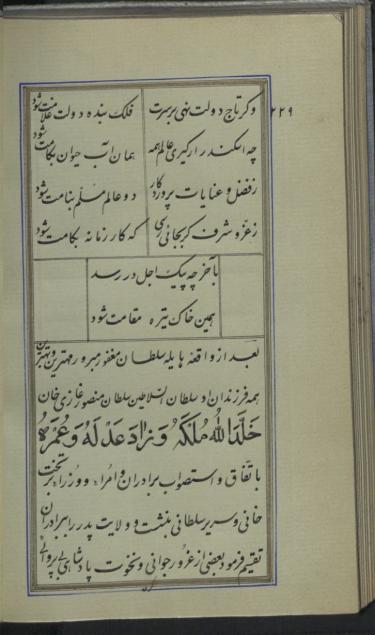 ۲۲۹
وکر تاج دولت نهی برسرت فلک بنده دولت غلامت شود
چه اسکندر ار کیری عالم همه همان آب حیوان بکامت شود
زفضل و عنایات پروردکار دو عالم مسلّم بنامت شود
زعزّ و شرف کر بجائی رسی که کار زمانه بکامت شود
بآخر چه پیک اجل در رسد
همین خاک تیره مقامت شود
بعد از واقعهٔ هایله سلطان مغفور مبرور مهترین و بهترین
همه فرزندان او سلطان السّلاطین سلطان منصور غازی خان
خَلَّدَ اللهُ مُلْکَهُ وَ زَادَ عَدْلَهُ وَ عُمْرَهُ
باتّفاق و استصواب برادران و امراء و وزراء بتخت
خانی و سریر سلطانی بنشست و ولایت پدر را ببرادران
تقسیم فرمود بعضی از غرور جوانی و نخوت پادشاهی